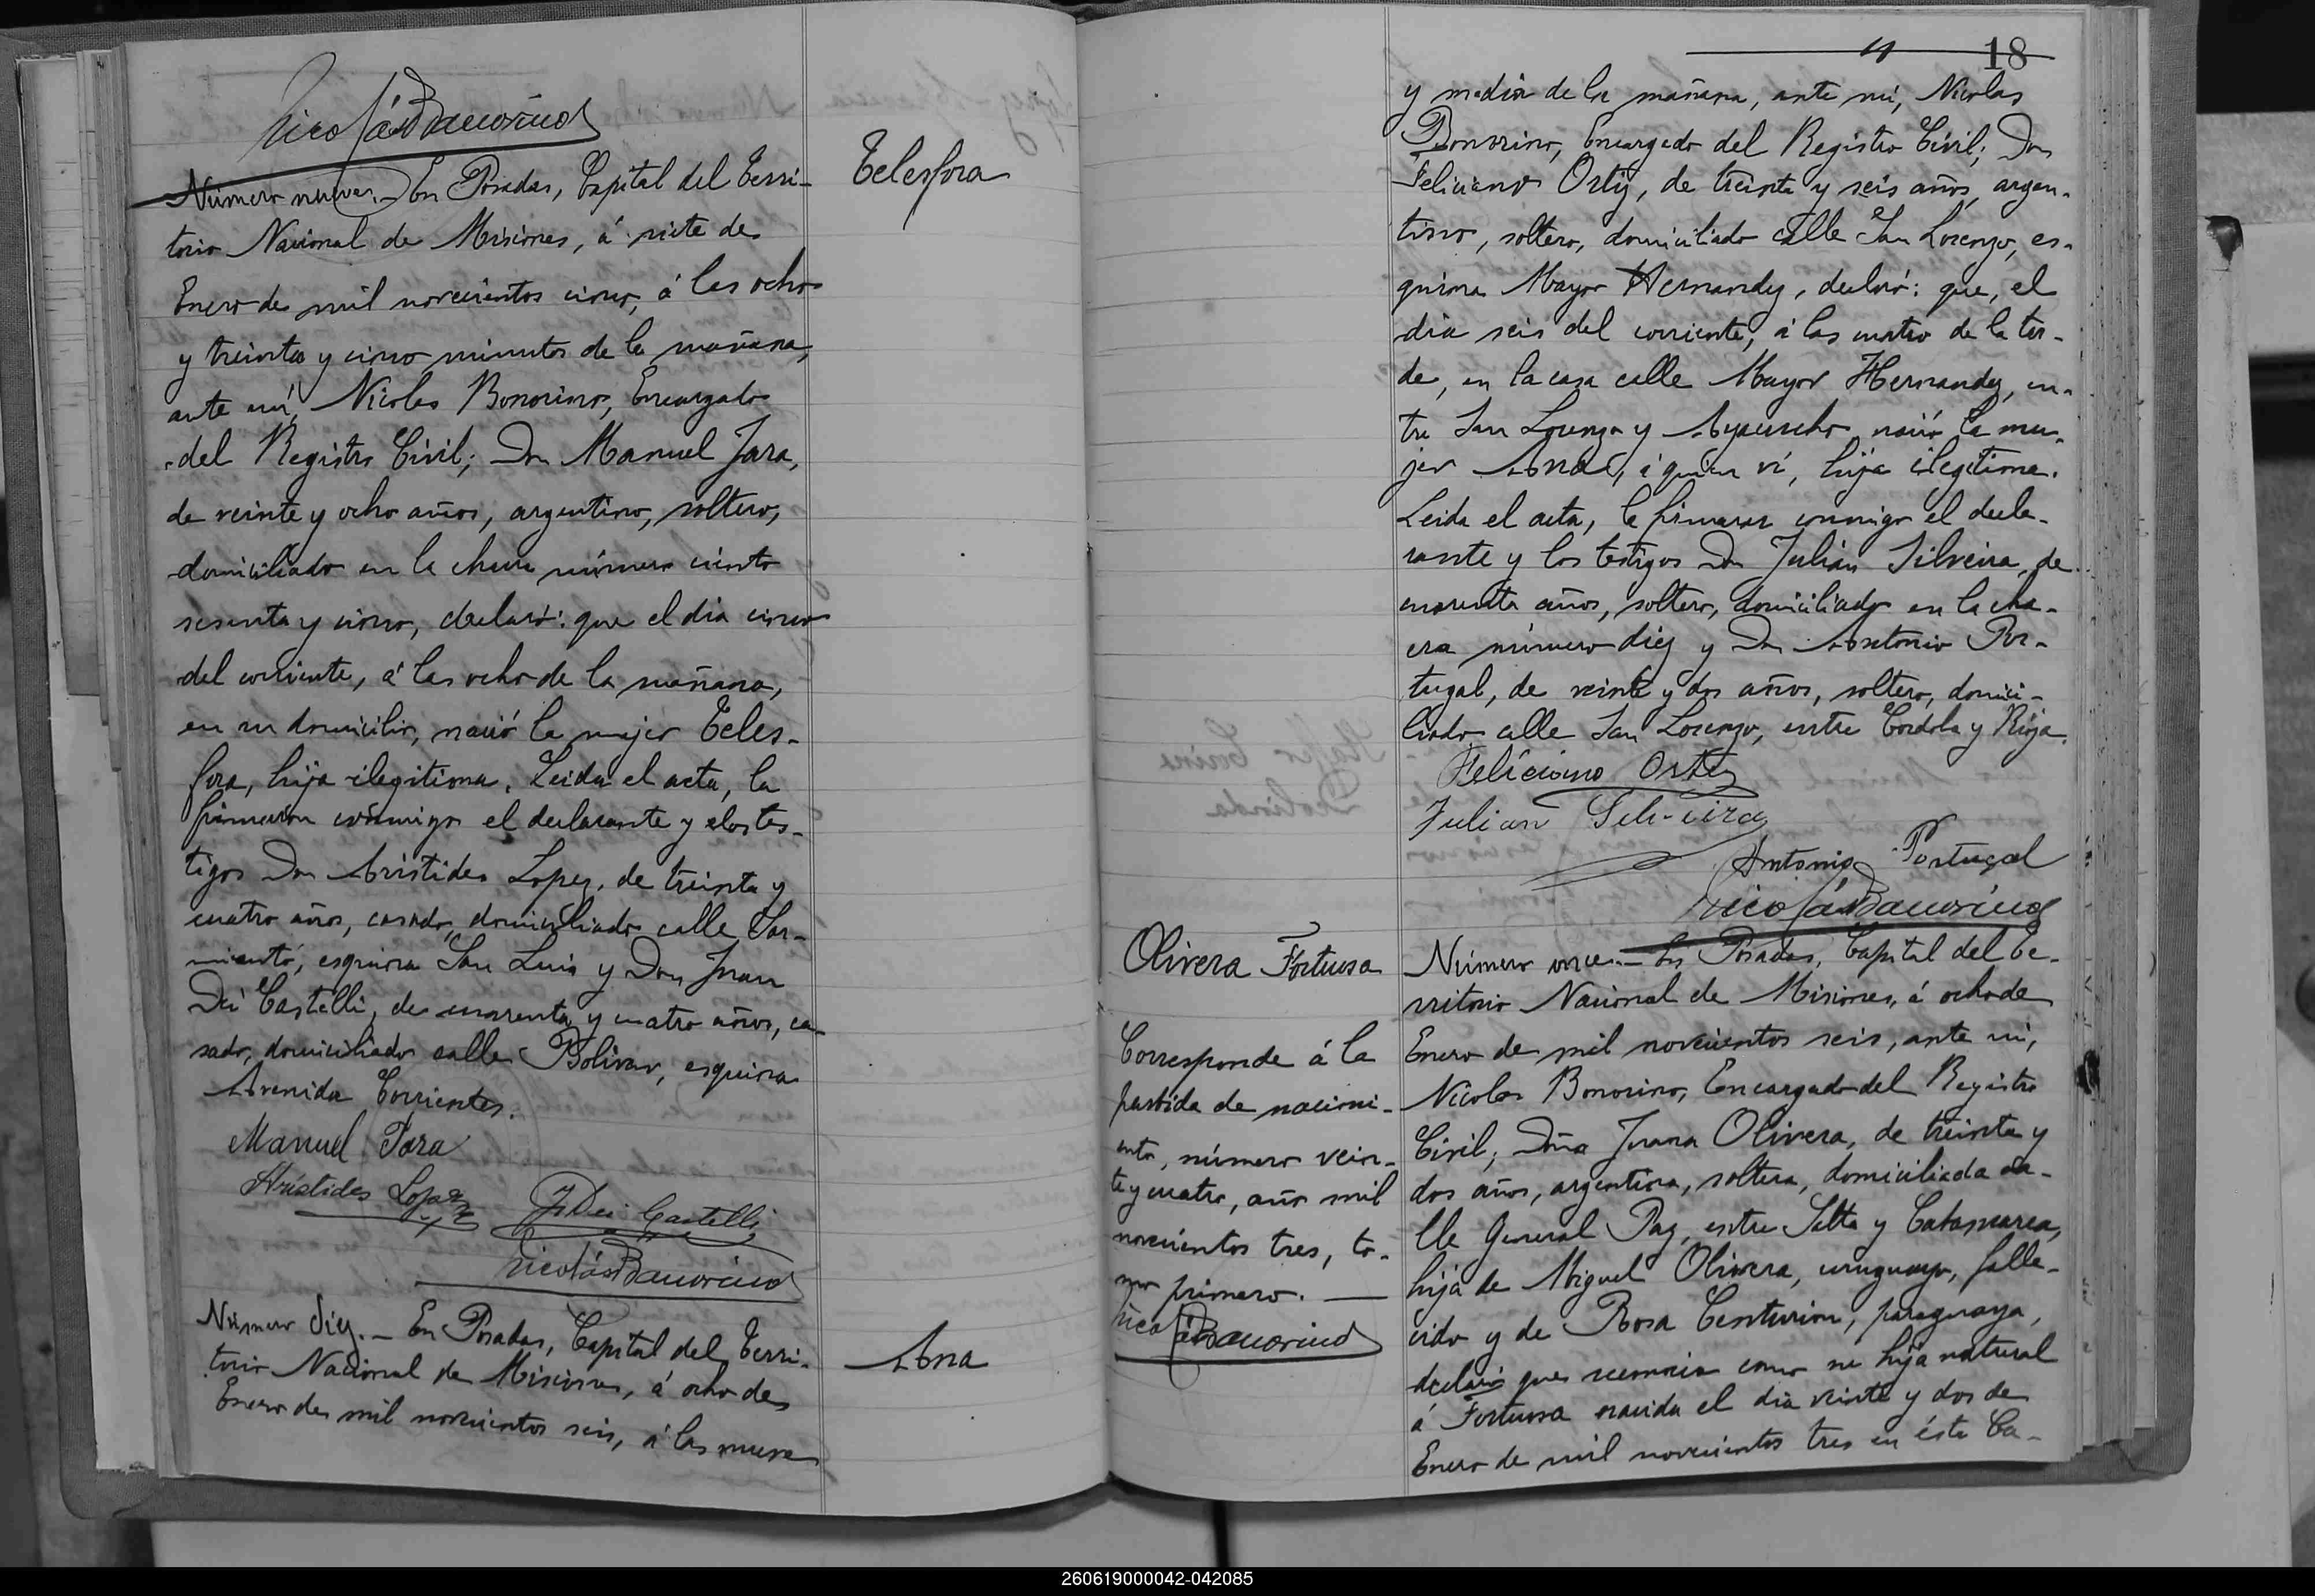 Nicolás Bonorino
Número nueve.- En Posadas, Capital del Terri-
torio Nacional de Misiones, á siete de
Enero de mil novecientos cinco, á las ocho
y treinta y cinco minutos de la mañana,
ante mí, Nicolas Bonorino, Encargado
del Registro Civil; Don Manuel Jara,
de veinte y ocho años, argentino, soltero,
domiciliado en la chacra número ciento
sesenta y cinco, declaró: que el dia cinco
del corriente, á las ocho de la mañana,
en su domicilio, nació la mujer Teles-
fora, hija ilegitima. Leida el acta, la
firmaron conmigo el declarante y los tes-
tigos Don Aristides Lopez, de treinta y
cuatro años, casado, domiciliado calle Sar-
miento, esquina San Luis y Don Juan
Dei Castelli, de cuarenta y cuatro años, ca-
sado, domiciliado calle Bolivar, esquina
Avenida Corrientes.
Manuel Jara
Aristides Lopez
J. Dei Castelli
Nicolás Bonorino
Número diez.- En Posadas, Capital del Terri-
torio Nacional de Misiones, á ocho de
Enero de mil novecientos seis, á las nueve
Telesfora
Ana
18
y media de la mañana, ante mí, Nicolas
Bonorino, Encargado del Registro Civil; Don
Feliciano Ortiz, de treinta y seis años, argen-
tino, soltero, domiciliado calle San Lorenzo, es-
quina Mayor Hernandez, declaró: que, el
dia seis del corriente, á las cuatro de la tar-
de, en la casa calle Mayor Hernandez, en-
tre San Lorenzo y Ayacucho nació la mu-
jer Ana, á quien ví, hija ilegitima.
Leida el acta, la firmaron conmigo el decla-
rante y los testigos Don Julián Silveira, de
cuarenta años, soltero, domiciliado en la cha-
cra número diez y Don Antonio Por-
tugal, de veinte y dos años, soltero, domici-
liado calle San Lorenzo, entre Cordoba y Rioja.
Feliciano Ortiz
Julian Silveira
Antonio Portugal
Nicolás Bonorino
Olivera Fortuosa
Corresponde á la
partida de nacimi-
ento, número vein-
te y cuatro, año mil
novecientos tres, to-
mo primero.
Nicolás Bonorino
Número once.- En Posadas, Capital del Te-
rritorio Nacional de Misiones, á ocho de
Enero de mil novecientos seis, ante mí,
Nicolas Bonorino, Encargado del Registro
Civil; Doña Juana Olivera, de treinta y
dos años, argentina, soltera, domiciliada ca-
lle General Paz, entre Salta y Catamarca,
hija de Miguel Olivera, uruguayo, falle-
cido y de Rosa Centurion, paraguaya,
declaró que reconocia como su hija natural
á Fortuosa nacida el dia veinte y dos de
Enero de mil novecientos tres en ésta Ca-
260619000042-042085